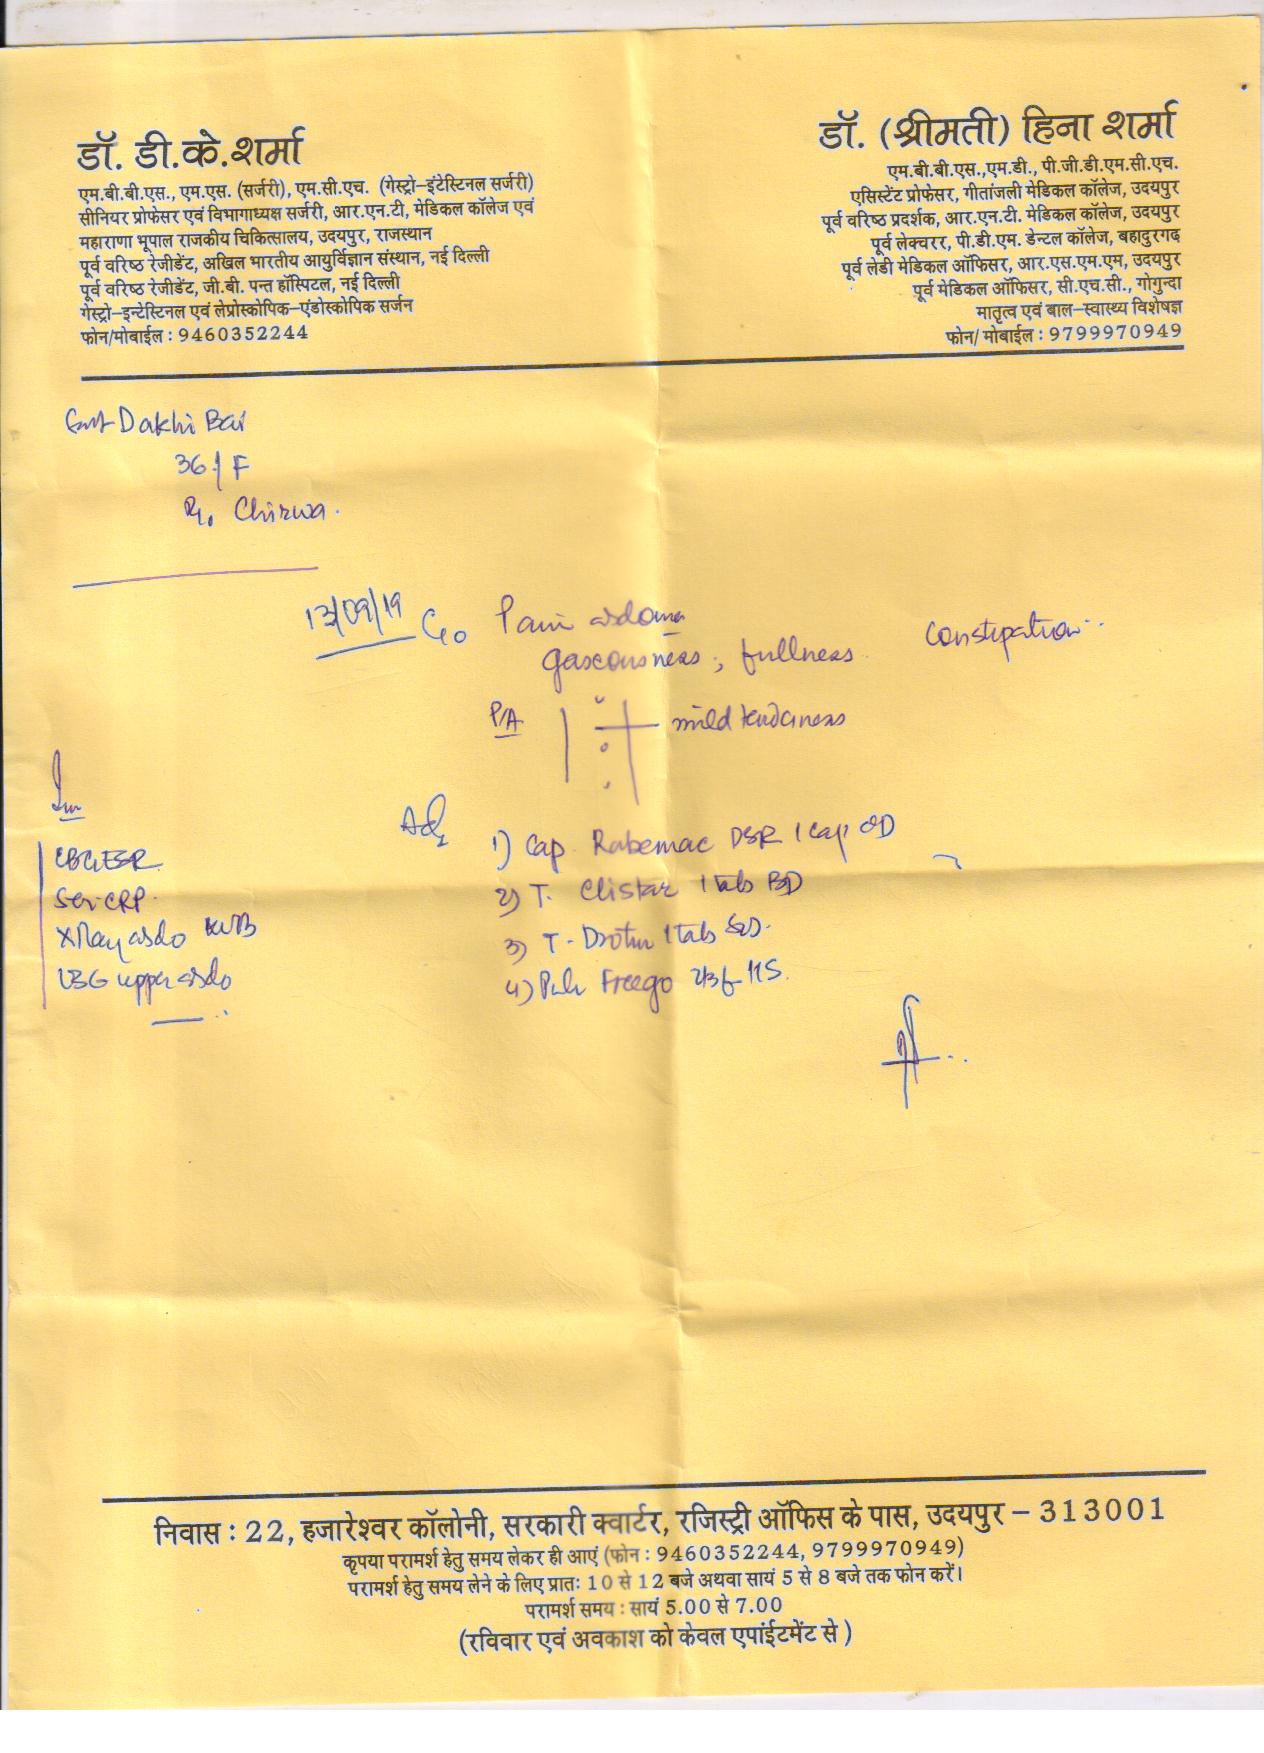 डॉ. डी.के.शर्मा
एम.बी.बी.एस., एम.एस. (सर्जरी), एम.सी.एच. (गेस्ट्रो-इंटेस्टिनल सर्जरी)
सीनियर प्रोफेसर एवं विभागाध्यक्ष सर्जरी, आर.एन.टी, मेडिकल कॉलेज एवं
महाराणा भूपाल राजकीय चिकित्सालय, उदयपुर, राजस्थान
पूर्व वरिष्ठ रेजीडेंट, अखिल भारतीय आयुर्विज्ञान संस्थान, नई दिल्ली
पूर्व वरिष्ठ रेजीडेंट, जी.बी. पन्त हॉस्पिटल, नई दिल्ली
गेस्ट्रो-इन्टेस्टिनल एवं लेप्रोस्कोपिक-एंडोस्कोपिक सर्जन
फोन/मोबाईल : 9460352244
डॉ. (श्रीमती) हिना शर्मा
एम.बी.बी.एस.,एम.डी., पी.जी.डी.एम.सी.एच.
एसिस्टेंट प्रोफेसर, गीतांजली मेडिकल कॉलेज, उदयपुर
पूर्व वरिष्ठ प्रदर्शक, आर.एन.टी. मेडिकल कॉलेज, उदयपुर
पूर्व लेक्चरर, पी.डी.एम. डेन्टल कॉलेज, बहादुरगढ
पूर्व लेडी मेडिकल ऑफिसर, आर.एस.एम.एम, उदयपुर
पूर्व मेडिकल ऑफिसर, सी.एच.सी., गोगुन्दा
मातृत्व एवं बाल-स्वास्थ्य विशेषज्ञ
फोन/ मोबाईल : 9799970949
Smt Dakhi Bai
36/F
R/o Chirwa.
13/09/19 C/o Pain abdomen
gaseousness, fullness constipation
P/A mild tenderness
Inv
CBC/ESR
Ser. CRP.
X Ray abdo KUB
USG upper abdo
Adv
1) Cap. Rabemac DSR 1 cap OD
2) T. Clistar 1 tab BD
3) T. 1 tab
4) Freego HS.
निवास : 22, हजारेश्वर कॉलोनी, सरकारी क्वार्टर, रजिस्ट्री ऑफिस के पास, उदयपुर - 313001
कृपया परामर्श हेतु समय लेकर ही आएं (फोन : 9460352244, 9799970949)
परामर्श हेतु समय लेने के लिए प्रातः 10 से 12 बजे अथवा सायं 5 से 8 बजे तक फोन करें।
परामर्श समय : सायं 5.00 से 7.00
(रविवार एवं अवकाश को केवल एपांईटमेंट से )